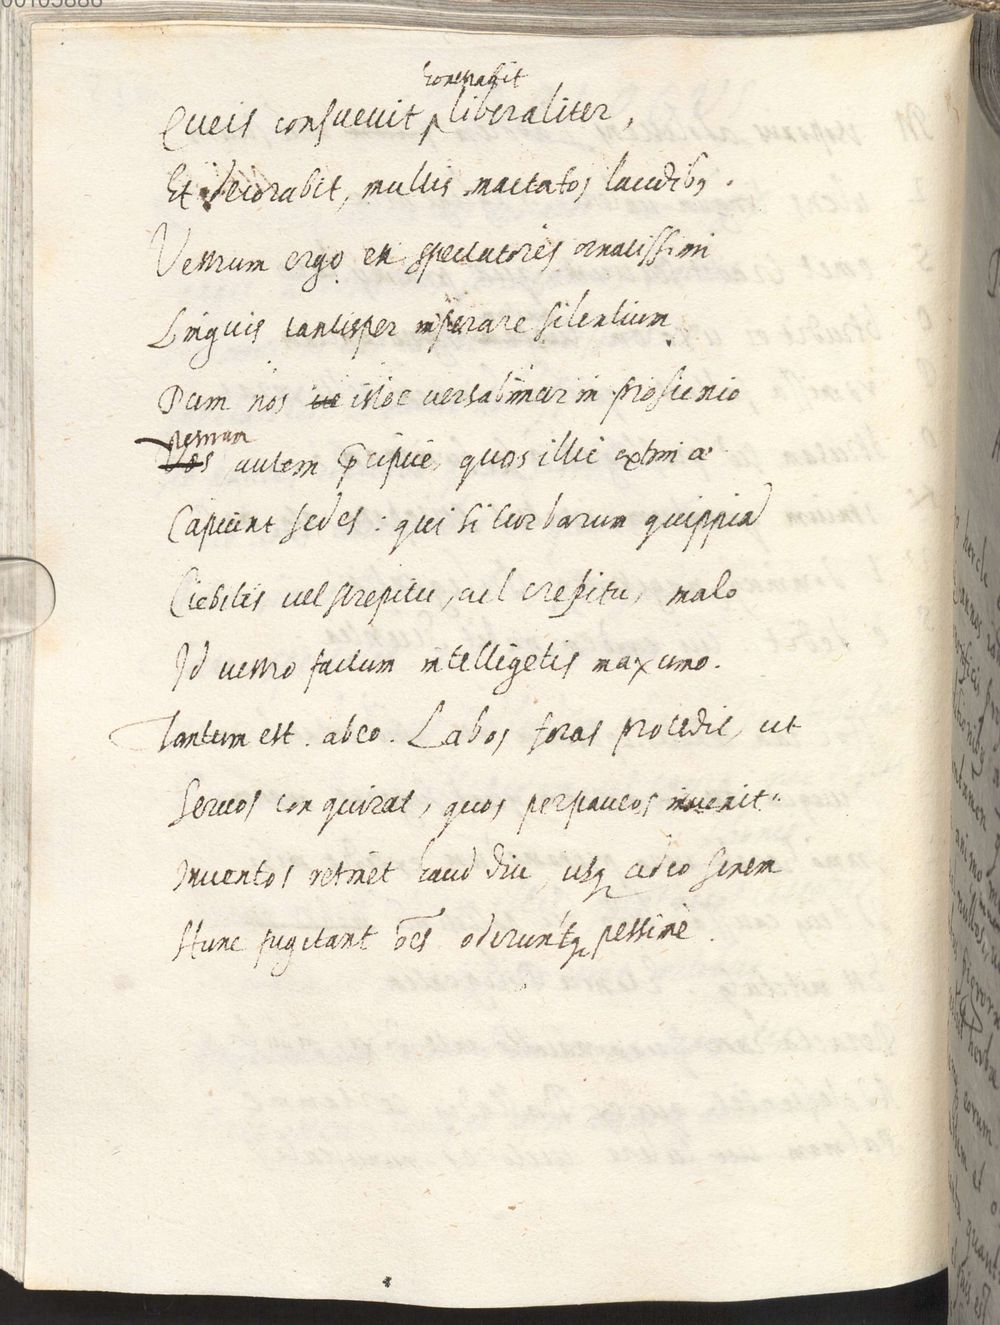 00105886
honestabit
Queis consueuit ^ liberaliter,
Et decorabit, multis mactatos laudib9.
Vestrum ergo est spectatores ornatissimi
Linguis tantisper imperare silentium
Dum nos istoc uersabimur in proscenio
uestrum
Vos autem p̄cipue, quos illic extimae
Capiunt sedes: qui si turbarum quippiā
Ciebitis uel strepitu, uel crepitu, malo
Id uestro factum intelligetis maxumo.
Tantum est. abeo. Labos foras procedit, ut
Seruos conquirat, quos perpaucos inuenit.
Inuentos retinet haud diu, usq adeo senem
Hunc fugitant oēs oderuntq pessime.